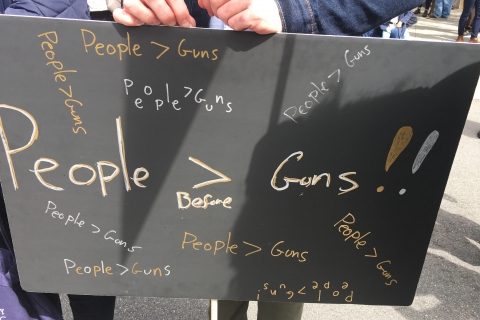 People > Guns
People > Guns
People > Guns
People > Guns
People > Guns!!
Before
People > Guns
People > Guns
People > Guns
People > Guns
People > Guns!